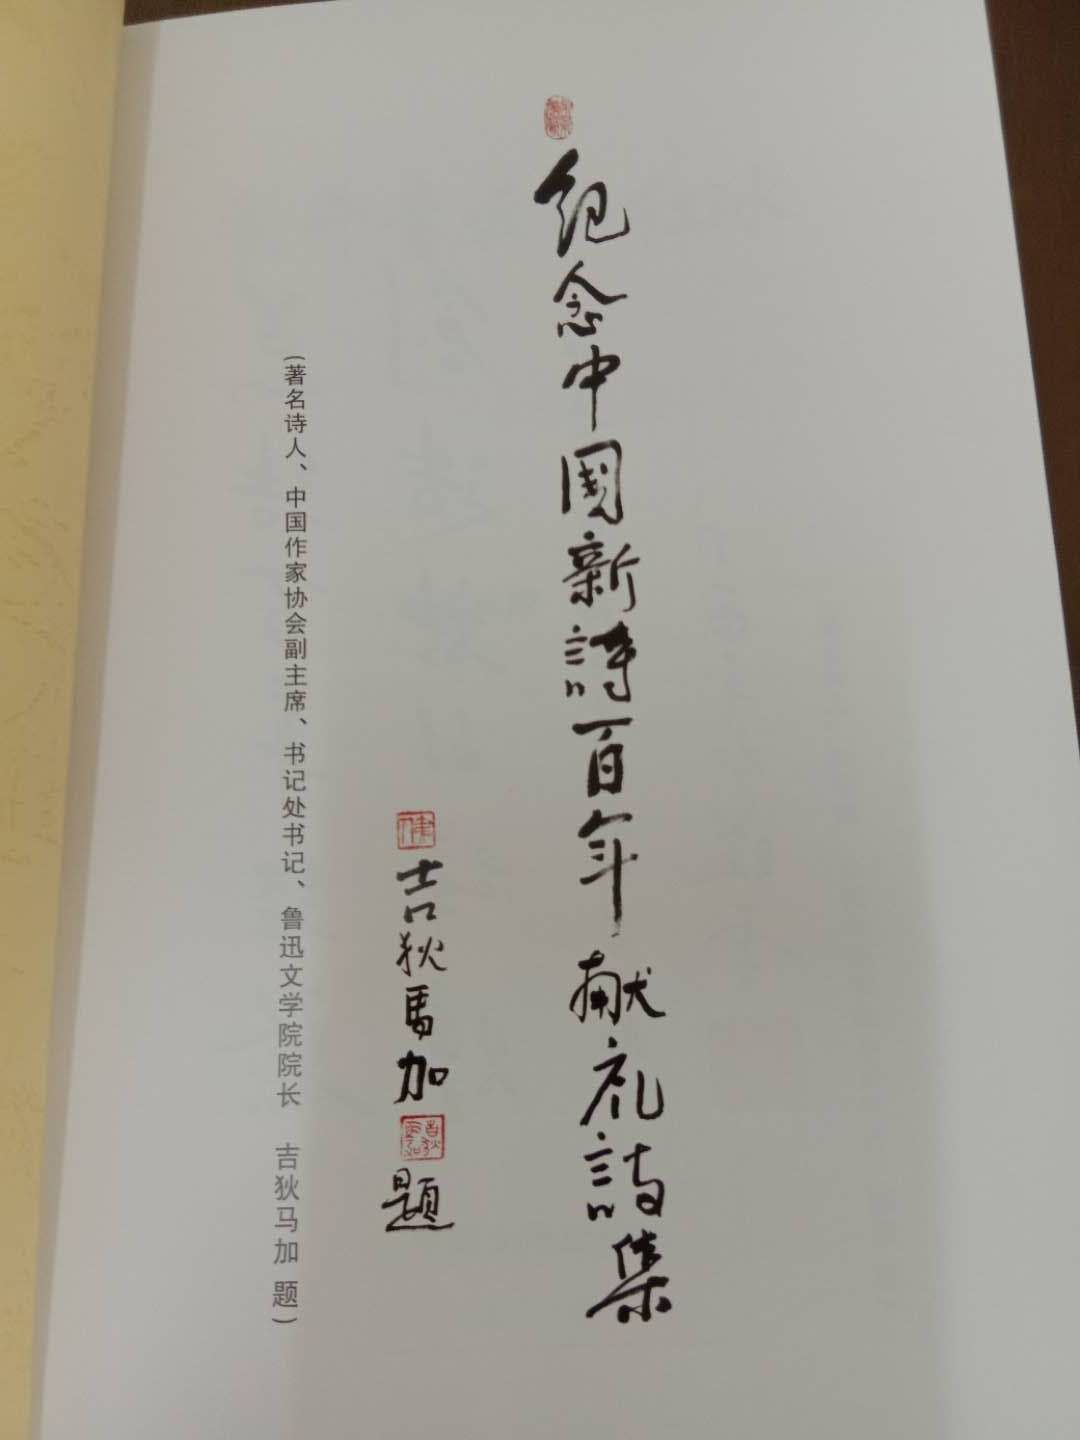 纪念中國新詩百年献礼詩集
吉狄馬加
題
(著名诗人、中国作家协会副主席、书记处书记、鲁迅文学院院长 吉狄马加 题)